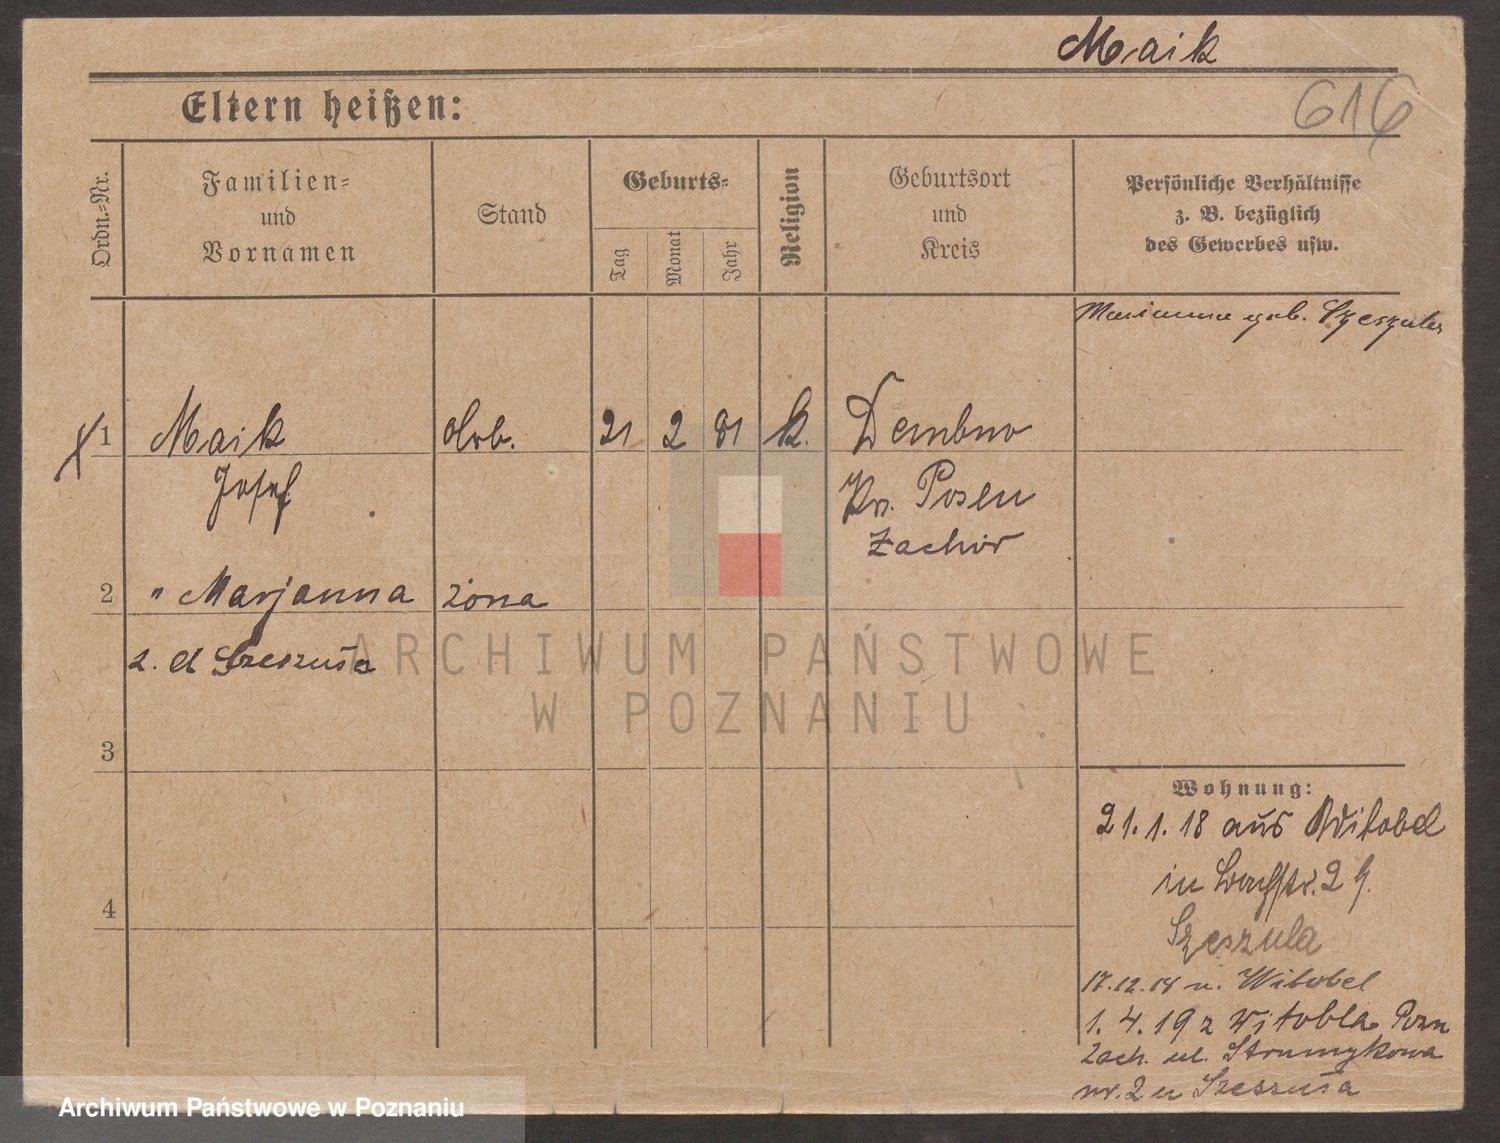 Maik
616
Eltern heißen:
Ordn.-Nr.
Familien-
und
Vornamen
Stand
Geburts-
Tag
Monat
Jahr
Religion
Geburtsort
und
Kreis
Persönliche Verhältnisse
z. B. bezüglich
des Gewerbes usw.
Marianna geb. Szeszula
1 Maik Arb. 21 2 81 k. Dembno
Josef Kr. Posen
Zachór
2 " Marjanna żona
z. d Szeszuła
3
4
Wohnung:
21.1.18 aus Witobel
in 2
Szeszula
17.12.18 n. Witobel
1.4.19 z Witobla Pozn
Zach. ul. Strumykowa
nr. 2 u Szeszuła
ARCHIWUM PAŃSTWOWE
W POZNANIU
Archiwum Państwowe w Poznaniu